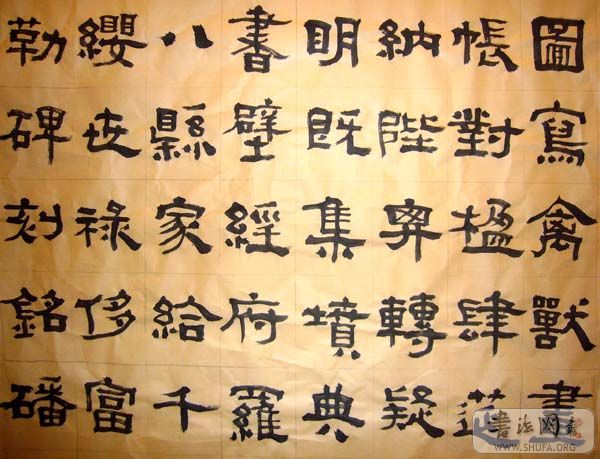 圖寫禽獸畫
帳對楹肆筵
納陛弁轉疑
明既集墳典
書壁經府羅
八縣家給千
纓世祿侈富
勒碑刻銘磻
WWW.SHUFA.ORG